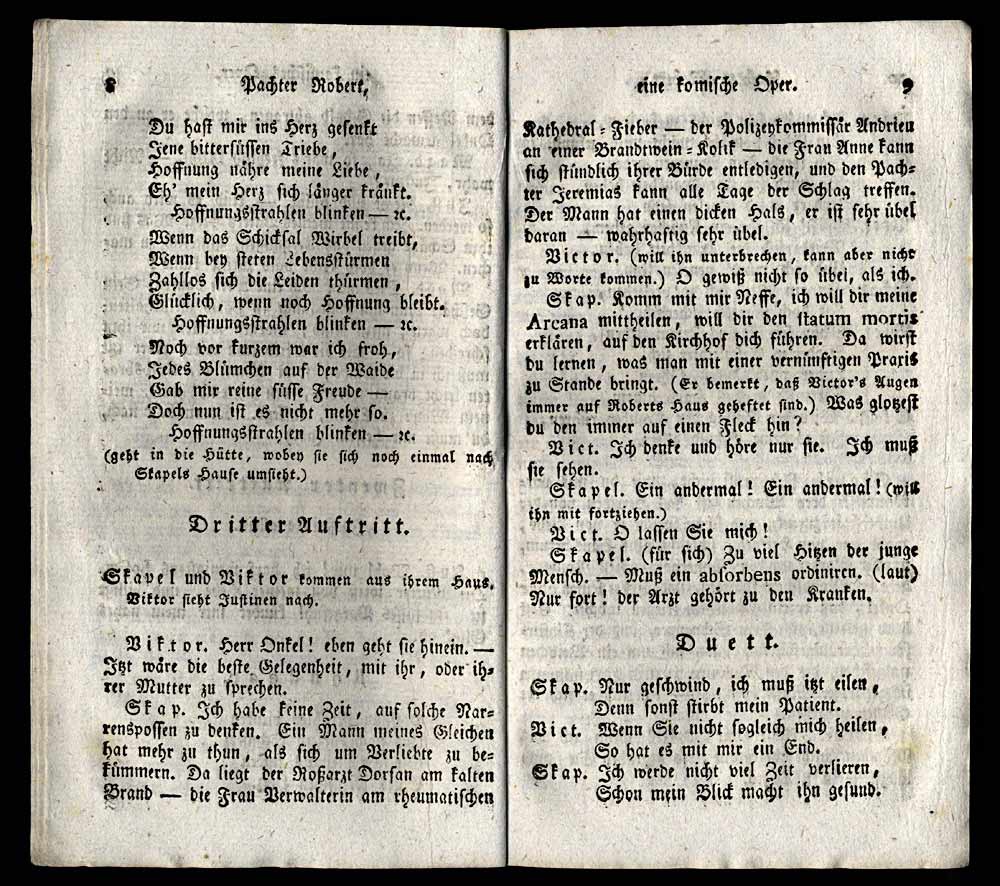 8 Pachter Robert,
Du hast mir ins Herz gesenkt
Jene bittersüssen Triebe,
Hoffnung nähre meine Liebe,
Eh' mein Herz sich länger kränkt.
Hoffnungsstrahlen blinken — ꝛc.
Wenn das Schicksal Wirbel treibt,
Wenn bey steten Lebensstürmen
Zahllos sich die Leiden thürmen,
Glücklich, wenn noch Hoffnung bleibt.
Hoffnungsstrahlen blinken — ꝛc.
Noch vor kurzem war ich froh,
Jedes Blümchen auf der Waide
Gab mir reine süsse Freude —
Doch nun ist es nicht mehr so.
Hoffnungsstrahlen blinken — ꝛc.
(geht in die Hütte, wobey sie sich noch einmal nach
Skapels Hause umsieht.)
Dritter Auftritt.
Skapel und Viktor kommen aus ihrem Haus.
Viktor sieht Justinen nach.
Viktor. Herr Onkel! eben geht sie hinein. —
Itzt wäre die beste Gelegenheit, mit ihr, oder ih-
rer Mutter zu sprechen.
Skap. Ich habe keine Zeit, auf solche Nar-
renspossen zu denken. Ein Mann meines Gleichen
hat mehr zu thun, als sich um Verliebte zu be-
kümmern. Da liegt der Roßarzt Dorsan am kalten
Brand — die Frau Verwalterin am rheumatischen
eine komische Oper. 9
Kathedral-Fieber — der Polizeykommissär Andrieu
an einer Brandtwein-Kolik — die Frau Anne kann
sich stündlich ihrer Bürde entledigen, und den Pach-
ter Jeremias kann alle Tage der Schlag treffen.
Der Mann hat einen dicken Hals, er ist sehr übel
daran — wahrhaftig sehr übel.
Victor. (will ihn unterbrechen, kann aber nicht
zu Worte kommen.) O gewiß nicht so übel, als ich.
Skap. Komm mit mir Neffe, ich will dir meine
Arcana mittheilen, will dir den statum mortis
erklären, auf den Kirchhof dich führen. Da wirst
du lernen, was man mit einer vernünftigen Praxis
zu Stande bringt. (Er bemerkt, daß Victor's Augen
immer auf Roberts Haus geheftet sind.) Was glotzest
du den immer auf einen Fleck hin?
Vict. Ich denke und höre nur sie. Ich muß
sie sehen.
Skapel. Ein andermal! Ein andermal! (will
ihn mit fortziehen.)
Vict. O lassen Sie mich!
Skapel. (für sich) Zu viel Hitzen der junge
Mensch. — Muß ein absorbens ordiniren. (laut)
Nur fort! der Arzt gehört zu den Kranken.
Duett.
Skap. Nur geschwind, ich muß itzt eilen,
Denn sonst stirbt mein Patient.
Vict. Wenn Sie nicht sogleich mich heilen,
So hat es mit mir ein End.
Skap. Ich werde nicht viel Zeit verlieren,
Schon mein Blick macht ihn gesund.